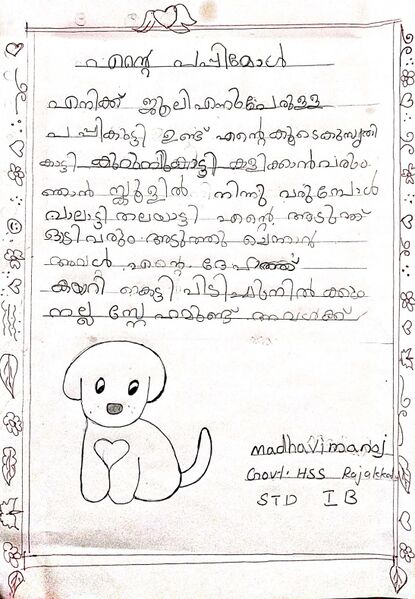 എൻ്റെ പപ്പിമോൾ
എനിക്ക് ജൂലി എന്നപേരുള്ള
പപ്പികുട്ടി ഉണ്ട് എൻ്റെകൂടെകുസൃതി
കാട്ടി കുറുമ്പ്കാട്ടി കളിക്കാൻവരും
ഞാൻ സ്കൂളിൽ നിന്നു വരുമ്പോൾ
വാലാട്ടി തലയാട്ടി എൻ്റെ അടുത്ത്
ഓടിവരും അടുത്തു ചെന്നാൽ
അവൾ എൻ്റെ ദേഹത്ത്
കയറി കെട്ടി പിടിച്ചുനിൽക്കും
നല്ല സ്നേഹമുണ്ട് അവൾക്ക്
madhavimanoj
Govt. HSS
STD I B